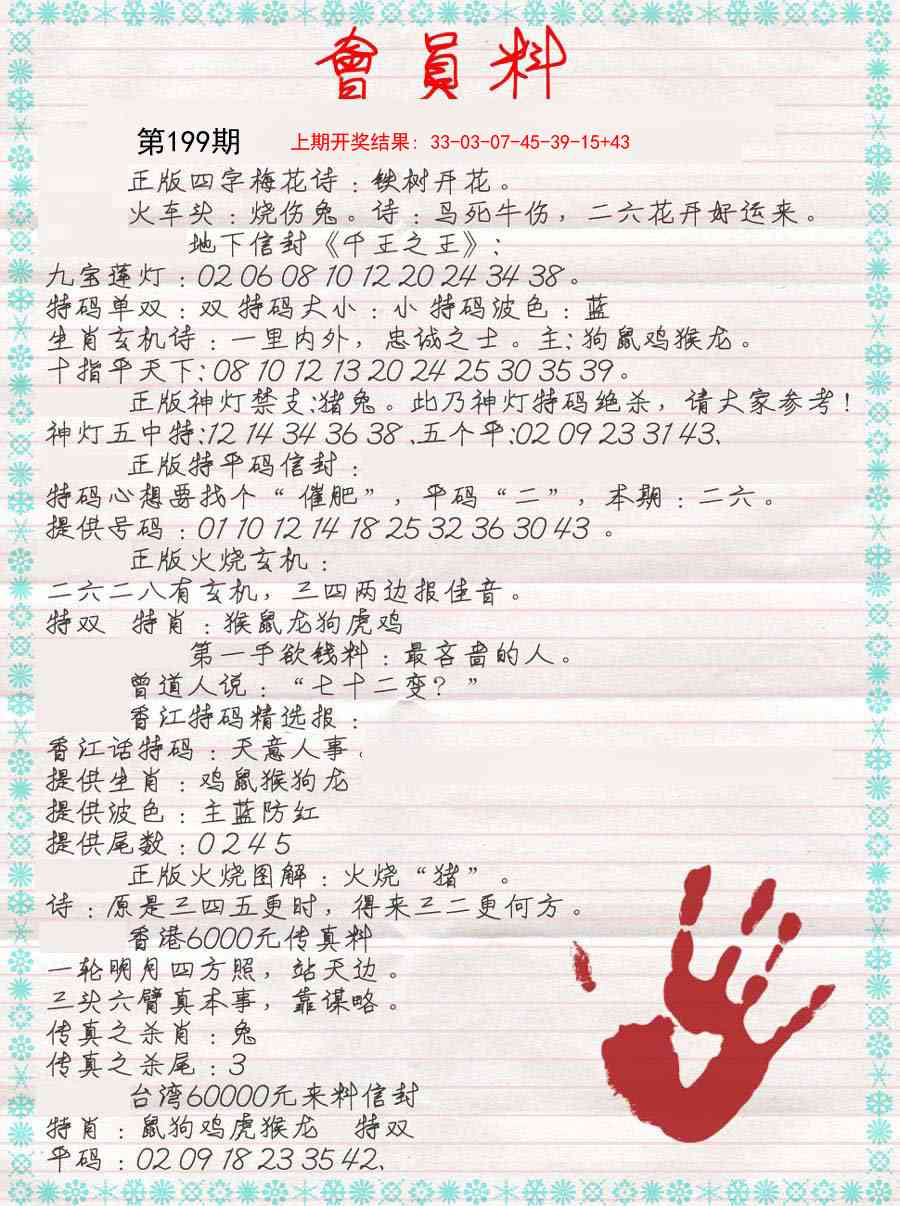 會員料
第199期 上期开奖结果：33-03-07-45-39-15+43
正版四字梅花诗：铁树开花。
火车头：烧伤兔。诗：鸟死牛伤，二六花开好运来。
地下信封《千王之王》：
九宝莲灯：02 06 08 10 12 20 24 34 38。
特码单双：双 特码大小：小 特码波色：蓝
生肖玄机诗：一里内外，忠诚之士。主：狗鼠鸡猴龙。
十指平天下：08 10 12 13 20 24 25 30 35 39。
正版神灯禁支：猪兔。此乃神灯特码绝杀，请大家参考！
神灯五中特：12 14 34 36 38、五个平：02 09 23 31 43、
正版特平码信封：
特码心想要找个“催肥”，平码“二”，本期：二六。
提供号码：01 10 12 14 18 25 32 36 30 43 。
正版火烧玄机：
二六二八有玄机，三四两边报佳音。
特双 特肖：猴鼠龙狗虎鸡
第一手欲钱料：最吝啬的人。
曾道人说：“七十二变？”
香江特码精选报：
香江话特码：天意人事
提供生肖：鸡鼠猴狗龙
提供波色：主蓝防红
提供尾数：0 2 4 5
正版火烧图解：火烧“猪”。
诗：原是三四五更时，得来三二更何方。
香港6000元传真料
一轮明月四方照，站天边。
三头六臂真本事，靠谋略。
传真之杀肖：兔
传真之杀尾：3
台湾60000元来料信封
特肖：鼠狗鸡虎猴龙 特双
平码：02 09 18 23 35 42、